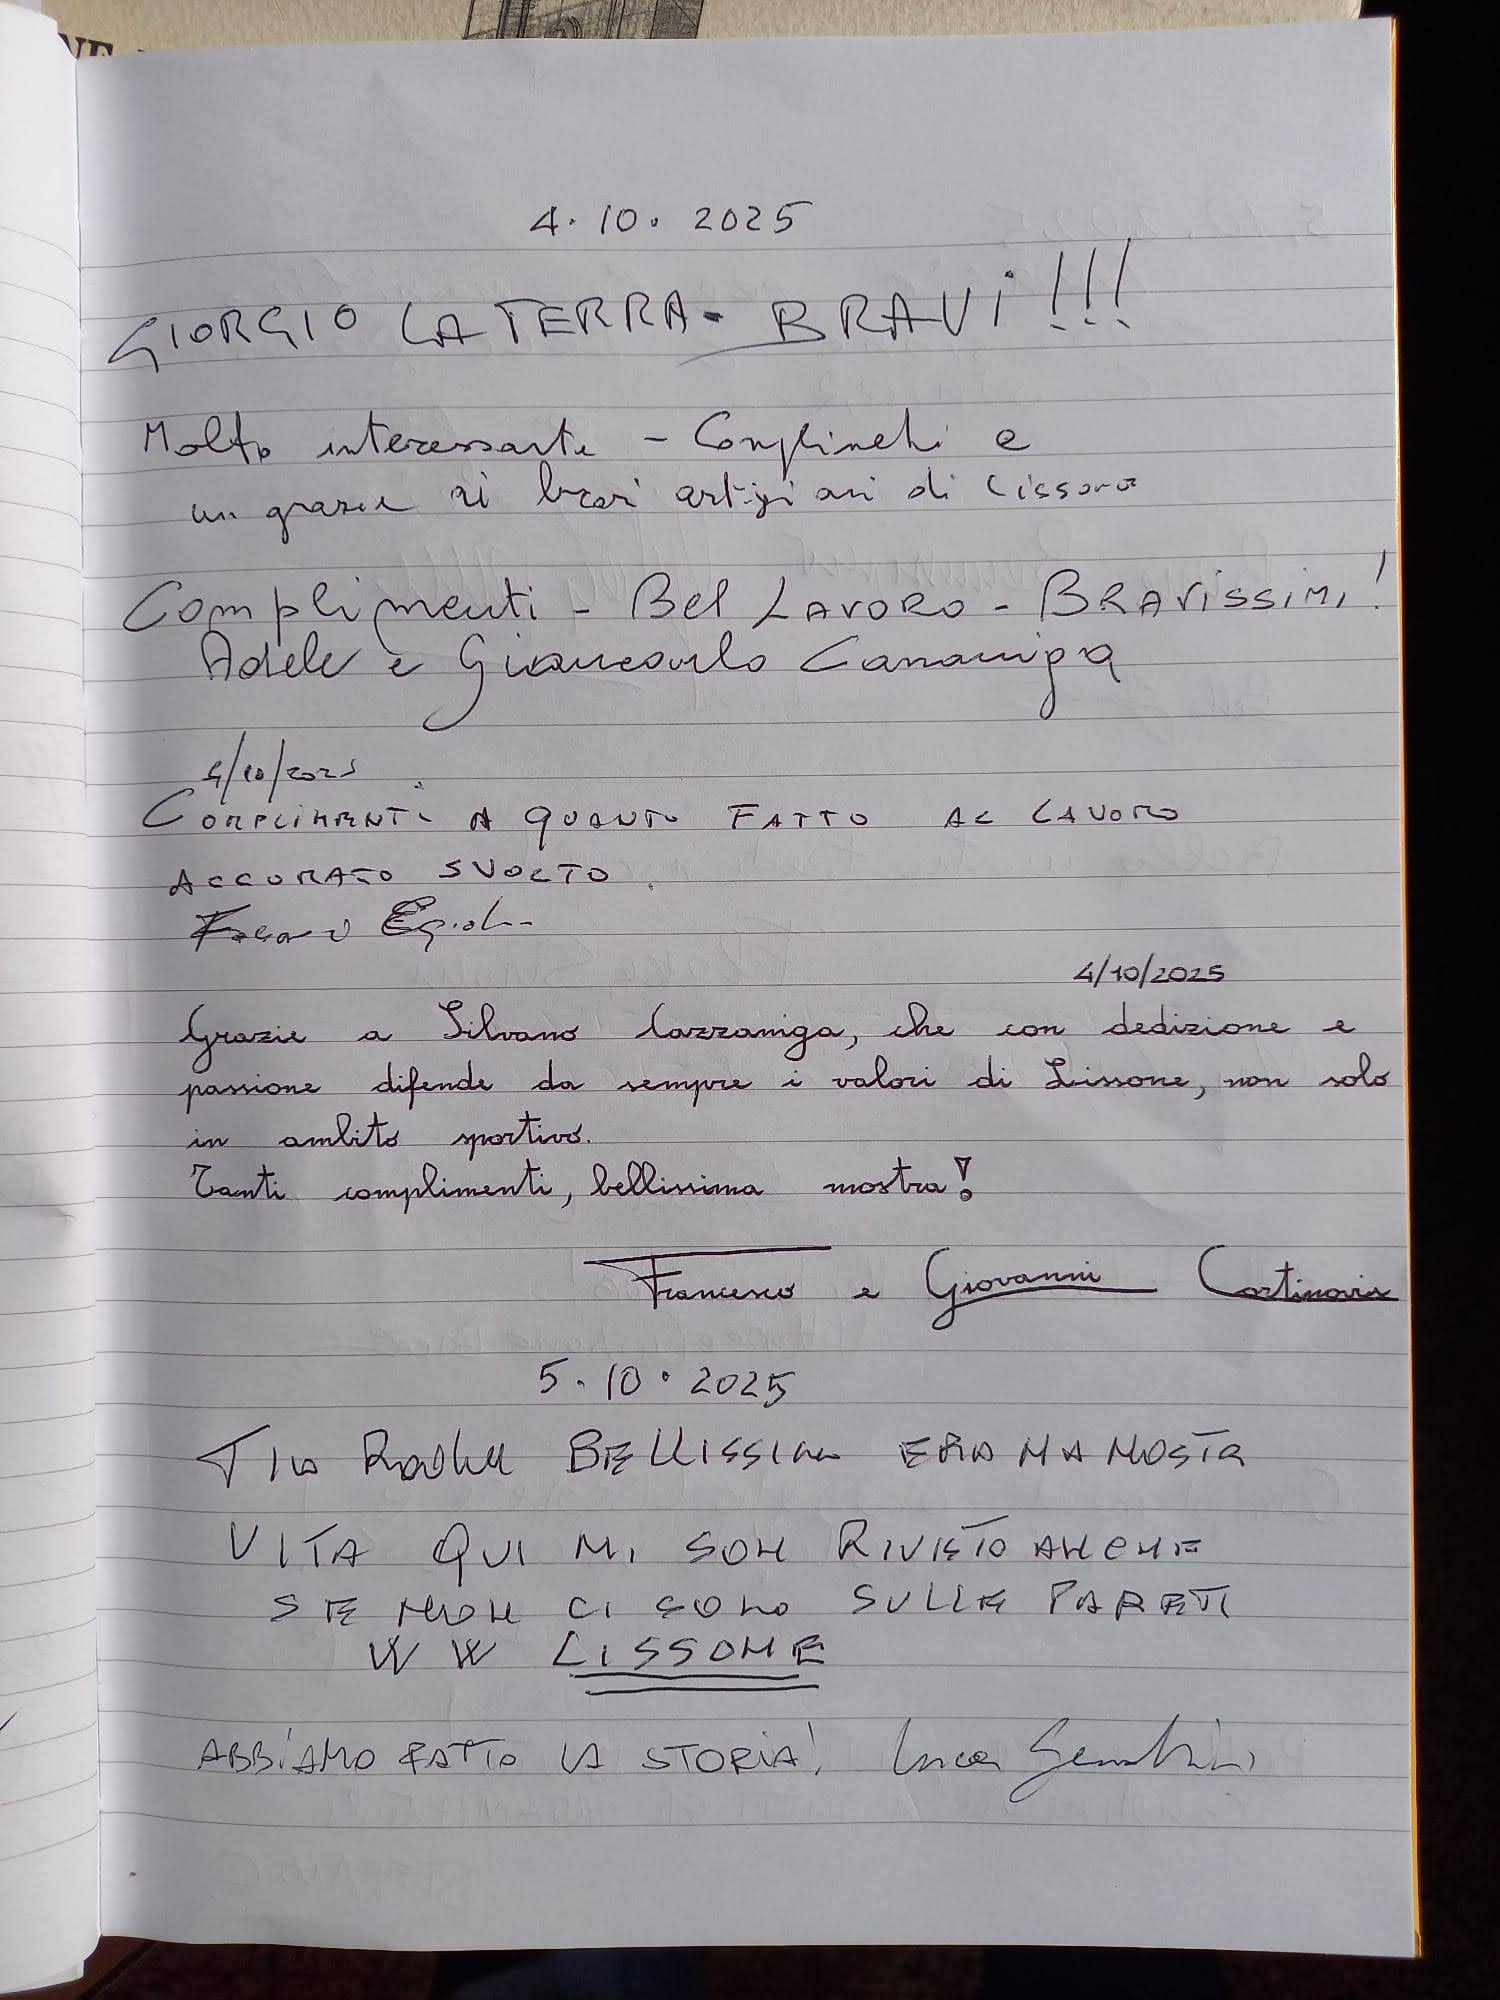 4.10.2025
GIORGIO LA TERRA - BRAVI!!!
Molto interessante - Complimenti e
un grazie ai bravi artigiani di Lissone
Complimenti - Bel LAVORO - BRAVISSIMI!
Adele e Giancarlo
4/10/2025
COMPLIMENTI A QUANTO FATTO AL LAVORO
ACCURATO SVOLTO.
4/10/2025
Grazie a Silvano Cazzaniga, che con dedizione e
passione difende da sempre i valori di Lissone, non solo
in ambito sportivo.
Tanti complimenti, bellissima mostra!
Francesco e Giovanni Cortinovis
5.10.2025
BELLISSIMA
VITA QUI MI SON RIVISTO ANCHE
SE NON CI SONO SULLE PARETI
WW LISSONE
ABBIAMO FATTO LA STORIA! Luca